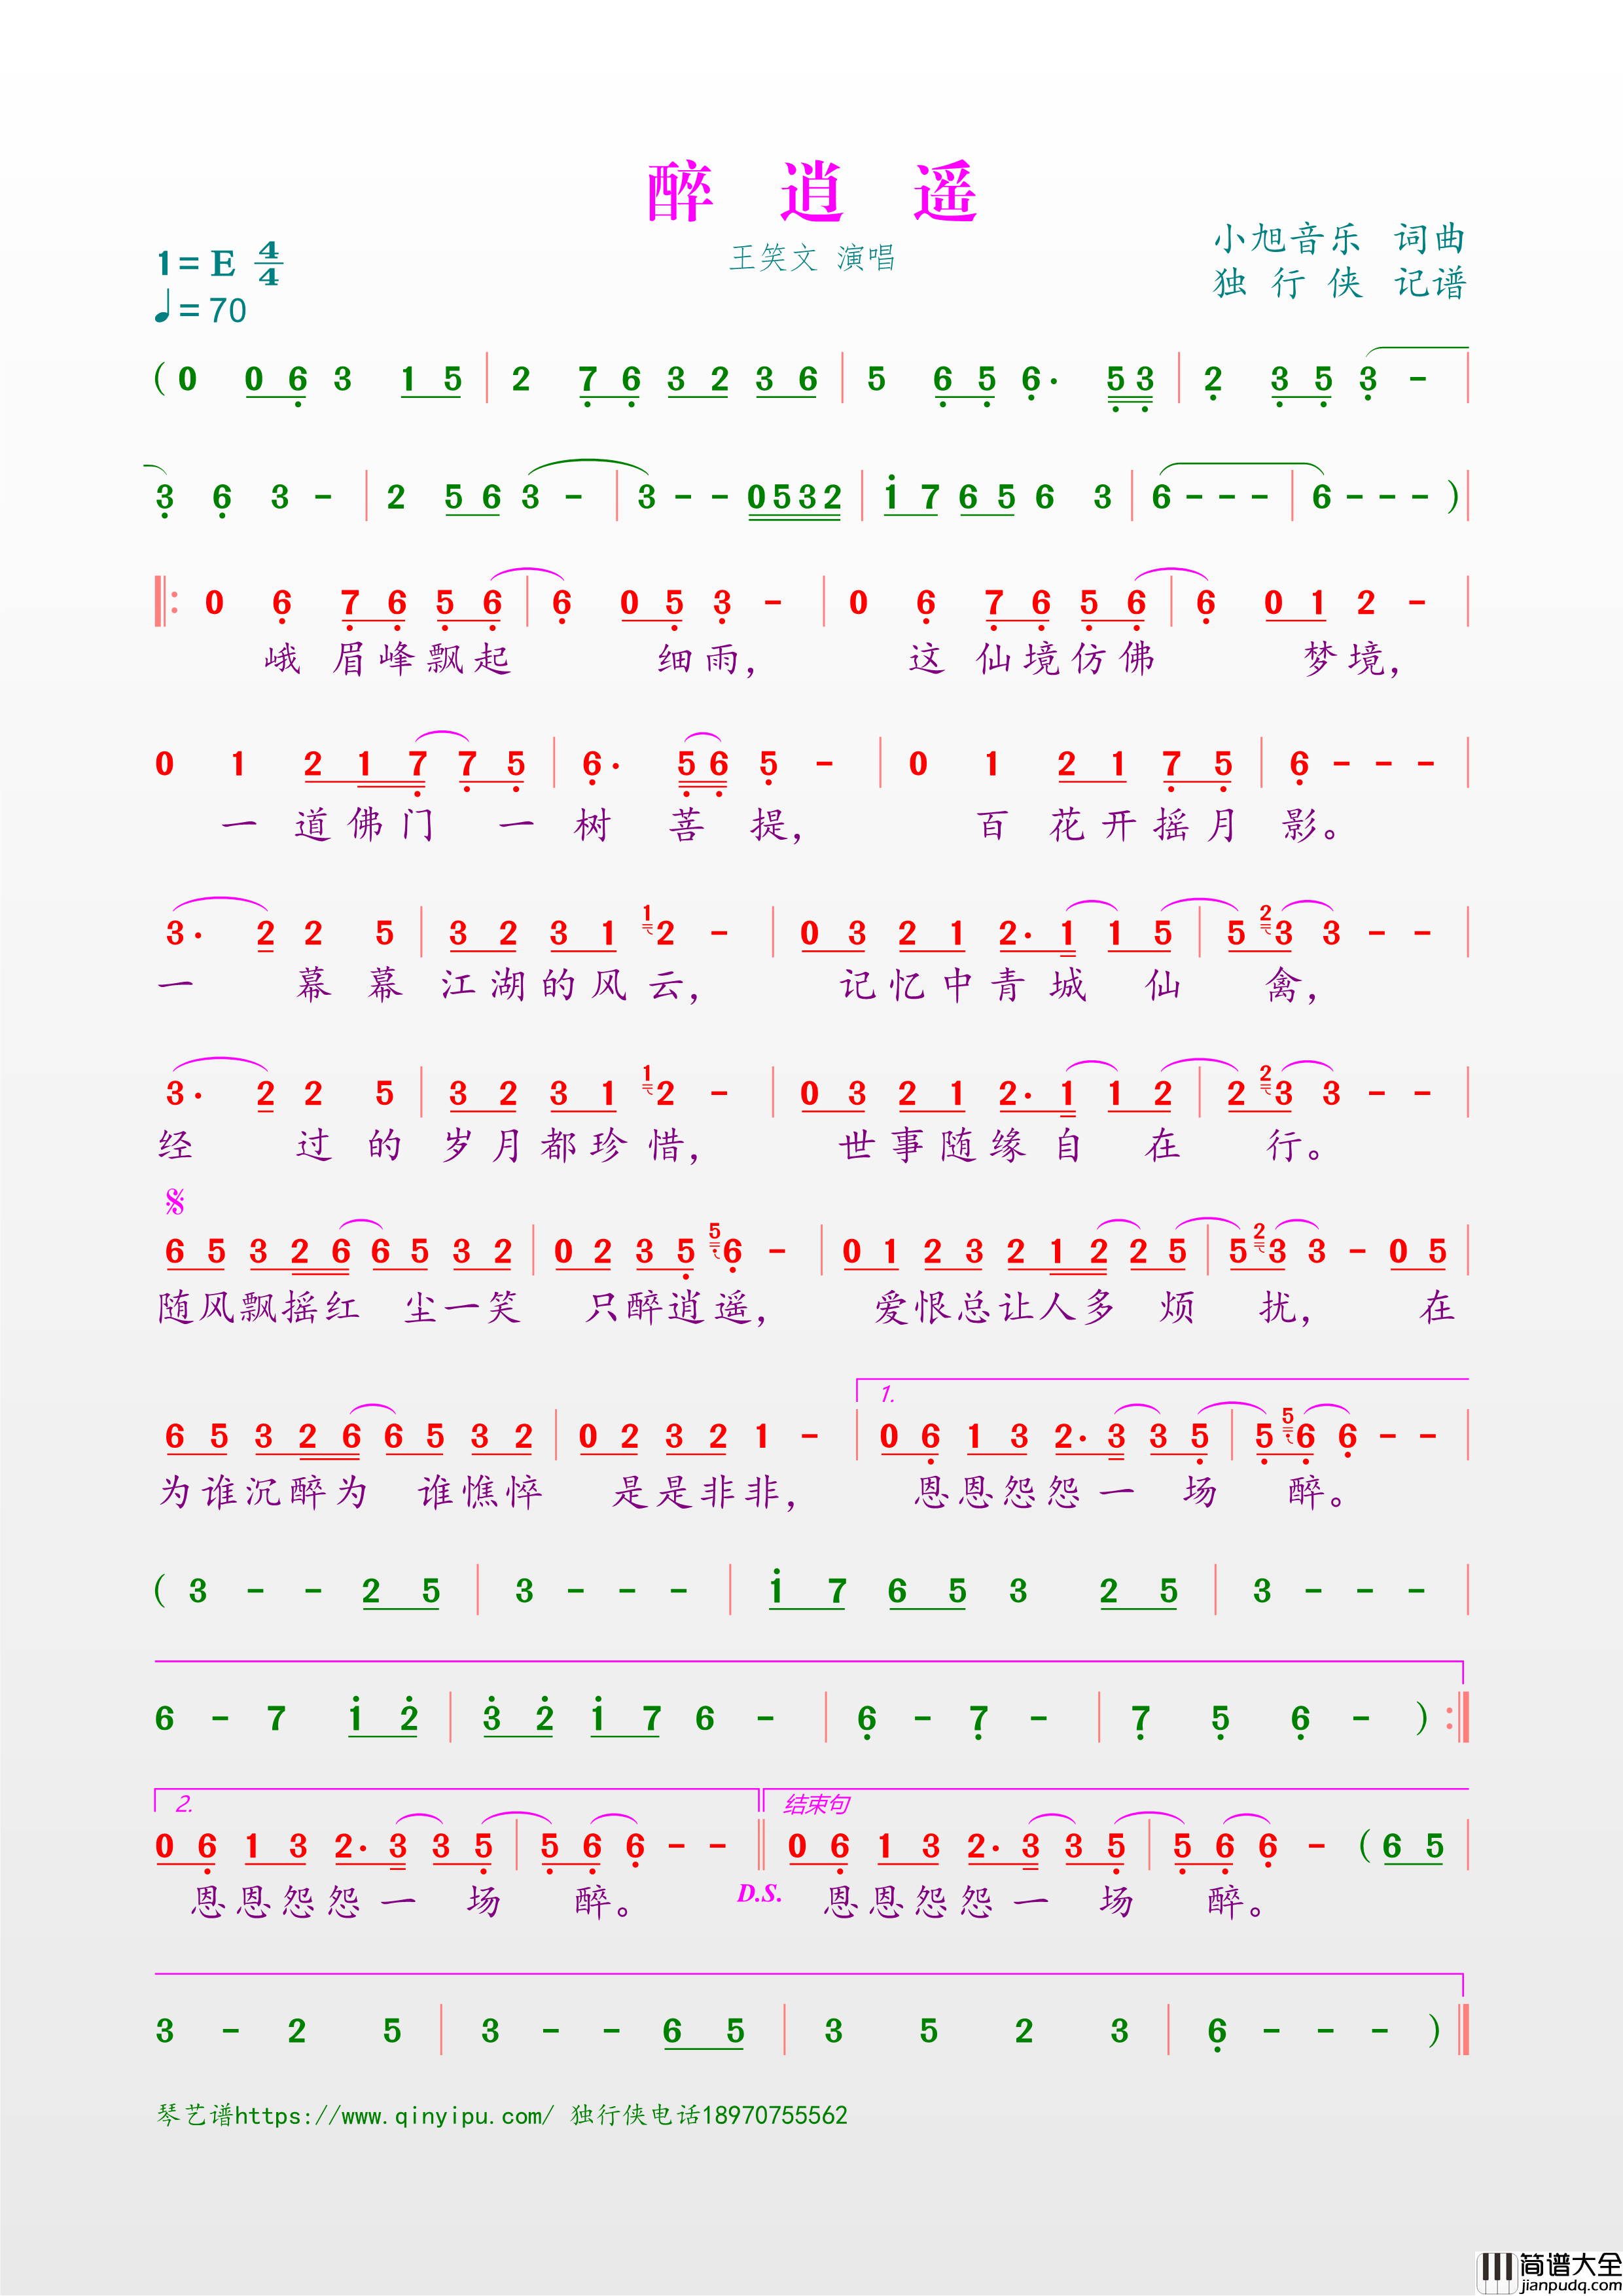 醉 逍 遥
王笑文 演唱
小旭音乐 词曲
独 行 侠 记谱
1=E 4/4
♩=70
( 0 0 6 3 1 5 | 2 7 6 3 2 3 6 | 5 6 5 6· 5 3 | 2 3 5 3 - |
3 6 3 - | 2 5 6 3 - | 3 - - 0 5 3 2 | 1 7 6 5 6 3 | 6 - - - | 6 - - - ) |
‖: 0 6 7 6 5 6 | 6 0 5 3 - | 0 6 7 6 5 6 | 6 0 1 2 - |
峨 眉 峰 飘 起 细 雨, 这 仙 境 仿 佛 梦 境,
0 1 2 1 7 7 5 | 6· 5 6 5 - | 0 1 2 1 7 5 | 6 - - - |
一 道 佛 门 一 树 菩 提, 百 花 开 摇 月 影。
3· 2 2 5 | 3 2 3 1 1 2 - | 0 3 2 1 2· 1 1 5 | 5 2 3 3 - - |
一 幕 幕 江 湖 的 风 云, 记 忆 中 青 城 仙 禽,
3· 2 2 5 | 3 2 3 1 1 2 - | 0 3 2 1 2· 1 1 2 | 2 2 3 3 - - |
经 过 的 岁 月 都 珍 惜, 世 事 随 缘 自 在 行。
𝄋
6 5 3 2 6 6 5 3 2 | 0 2 3 5 5 6 - | 0 1 2 3 2 1 2 2 5 | 5 2 3 3 - 0 5 |
随 风 飘 摇 红 尘 一 笑 只 醉 逍 遥, 爱 恨 总 让 人 多 烦 扰, 在
1.
6 5 3 2 6 6 5 3 2 | 0 2 3 2 1 - | 0 6 1 3 2· 3 3 5 | 5 5 6 6 - - |
为 谁 沉 醉 为 谁 憔 悴 是 是 非 非, 恩 恩 怨 怨 一 场 醉。
( 3 - - 2 5 | 3 - - - | 1 7 6 5 3 2 5 | 3 - - - |
6 - 7 1 2 | 3 2 1 7 6 - | 6 - 7 - | 7 5 6 - ) :‖
2. 结束句
0 6 1 3 2· 3 3 5 | 5 6 6 - - ‖ 0 6 1 3 2· 3 3 5 | 5 6 6 - ( 6 5 |
恩 恩 怨 怨 一 场 醉。 D.S. 恩 恩 怨 怨 一 场 醉。
3 - 2 5 | 3 - - 6 5 | 3 5 2 3 | 6 - - - ) ‖
琴艺谱https://www.qinyipu.com/ 独行侠电话18970755562
简谱大全
jianpudq.com